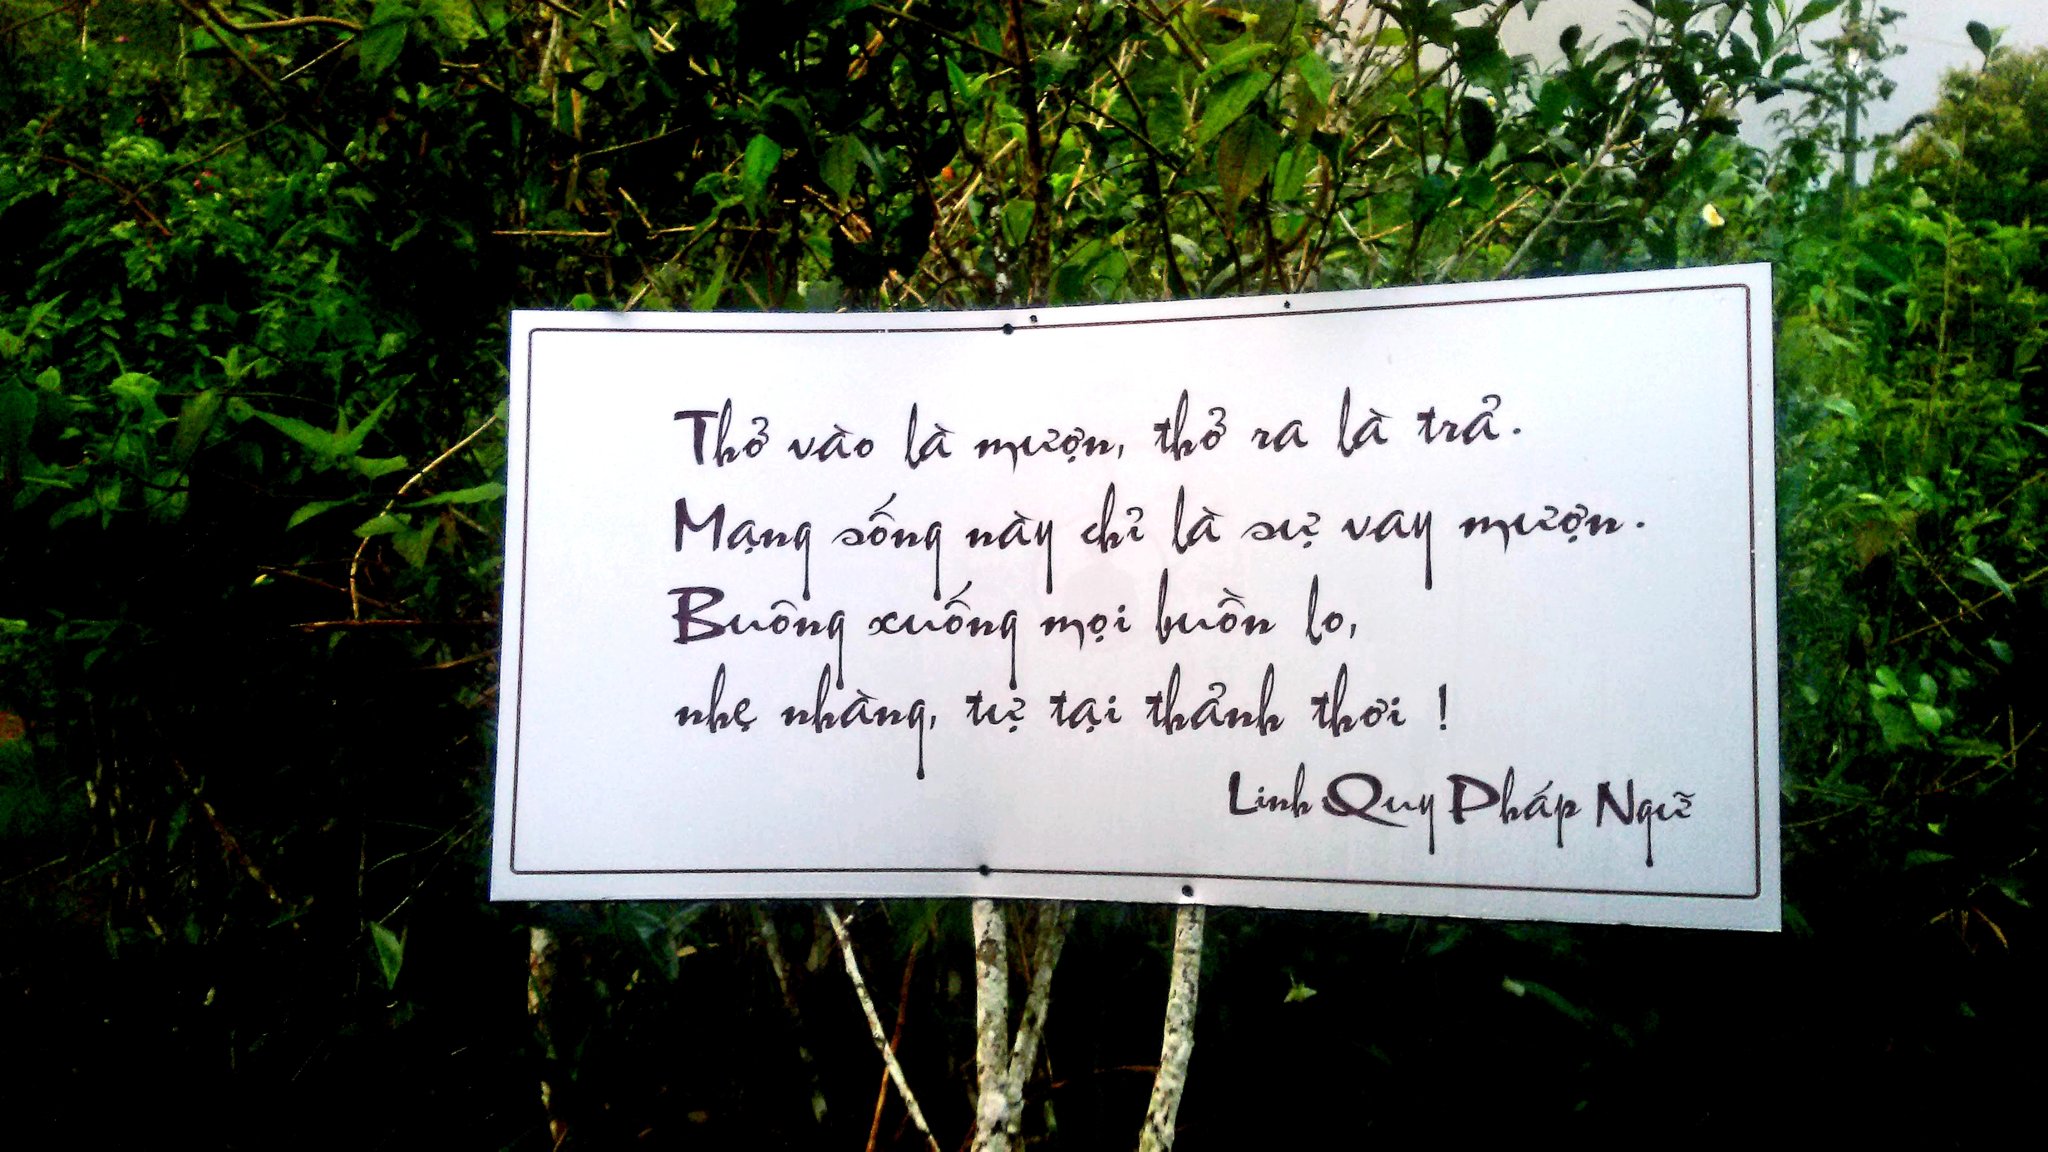 Thở vào là mượn, thở ra là trả.
Mạng sống này chỉ là sự vay mượn.
Buông xuống mọi buồn lo,
nhẹ nhàng, tự tại thảnh thơi !
Linh Quy Pháp Ngữ